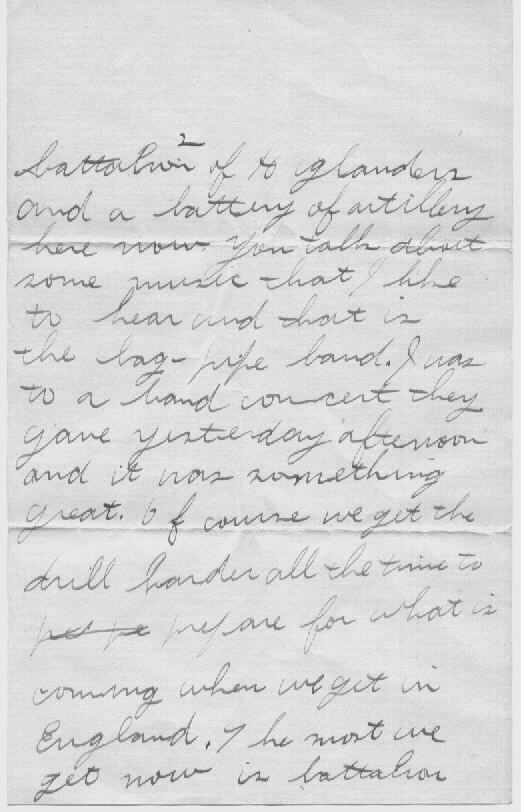 2
battalion of Higlanders
and a battery of artillery
here now. You talk about
some music that I like
to hear and that is
the bag-pipe band. I was
to a band concert they
gave yesterday afternoon
and it was something
great. Of course we get the
drill harder all the time to
prepare for what is
coming when we get in
England. The most we
get now is battalion